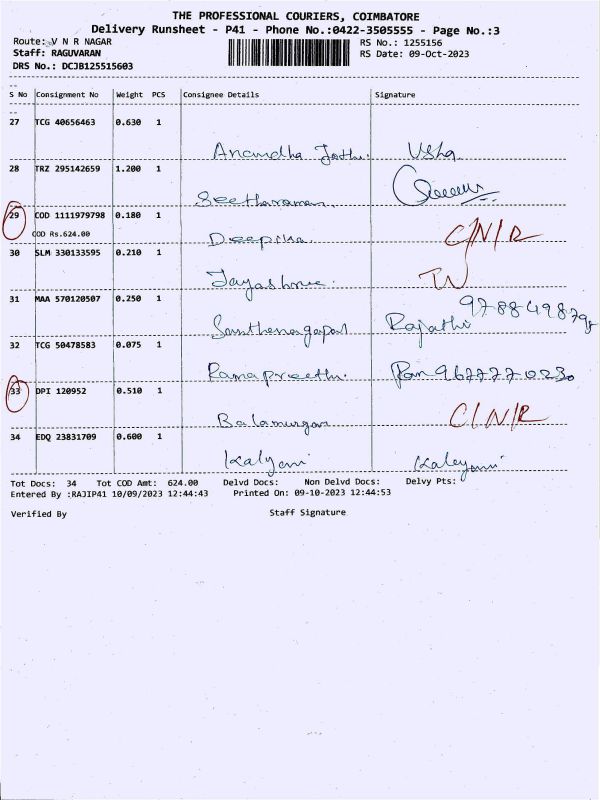 THE PROFESSIONAL COURIERS, COIMBATORE
Delivery Runsheet - P41 - Phone No.:0422-3505555 - Page No.:3
Route: V N R NAGAR RS No.: 1255156
Staff: RAGUVARAN RS Date: 09-Oct-2023
DRS No.: DCJB125515603
S No Consignment No Weight PCS Consignee Details Signature
27 TCG 40656463 0.630 1
Anandha Jothi. Usha
28 TRZ 295142659 1.200 1
Seetharaman
29 COD 1111979798 0.180 1
COD Rs.624.00
Deepika C/N/R
30 SLM 330133595 0.210 1
Jayashree.
31 MAA 570120507 0.250 1
Rajathi
32 TCG 50478583 0.075 1
Ramapreethi. Ram
33 DPI 120952 0.510 1
Balamurgan C/N/R
34 EDQ 23831709 0.600 1
Kalyani Kaleyani
Tot Docs: 34 Tot COD Amt: 624.00 Delvd Docs: Non Delvd Docs: Delvy Pts:
Entered By :RAJIP41 10/09/2023 12:44:43 Printed On: 09-10-2023 12:44:53
Verified By Staff Signature